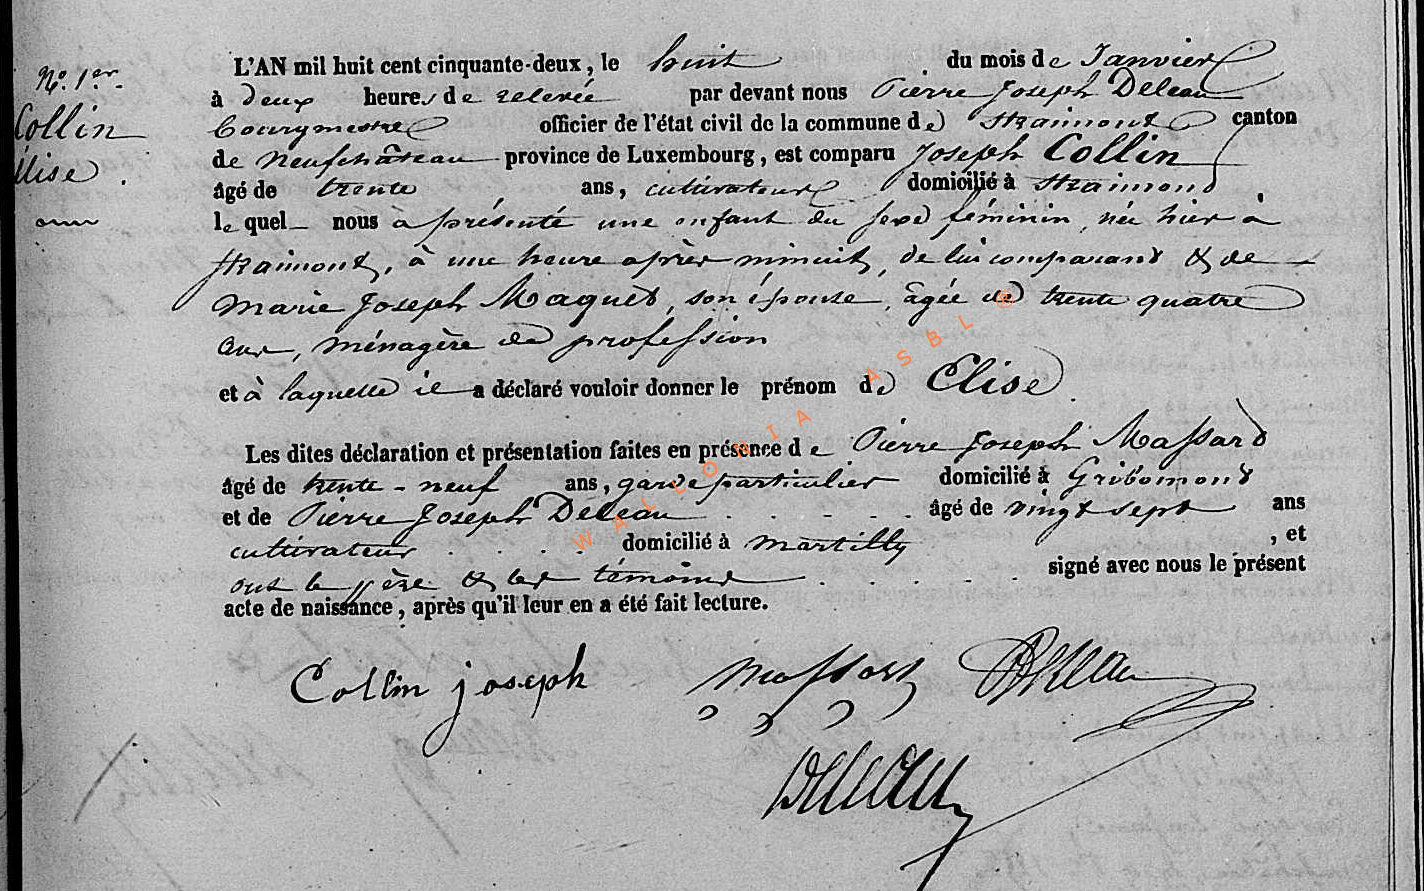 L'AN mil huit cent cinquante-deux, le huit du mois de Janvier
No. 1er.
à deux heures de relevée par devant nous Pierre Joseph Deleau
Collin
bourgmestre officier de l'état civil de la commune de Straimont canton
Elise
de Neufchâteau province de Luxembourg, est comparu Joseph Collin
âgé de trente ans, cultivateur domicilié à Straimont
le quel nous a présenté une enfant du sexe féminin, née hier à
Straimont, à une heure après minuit, de lui comparant & de
Marie Joseph Maquet, son épouse, âgée de trente quatre
ans, ménagère de profession
et à laquelle il a déclaré vouloir donner le prénom de Elise.
Les dites déclaration et présentation faites en présence de Pierre Joseph Massard
âgé de trente-neuf ans, garde particulier domicilié à Gribomont
et de Pierre Joseph Deleau âgé de vingt sept ans
cultivateur domicilié à Martilly, et
ont le père & les témoins signé avec nous le présent
acte de naissance, après qu'il leur en a été fait lecture.
Collin joseph Massart Deleau
Deleau
WALLONIA ASBL ©